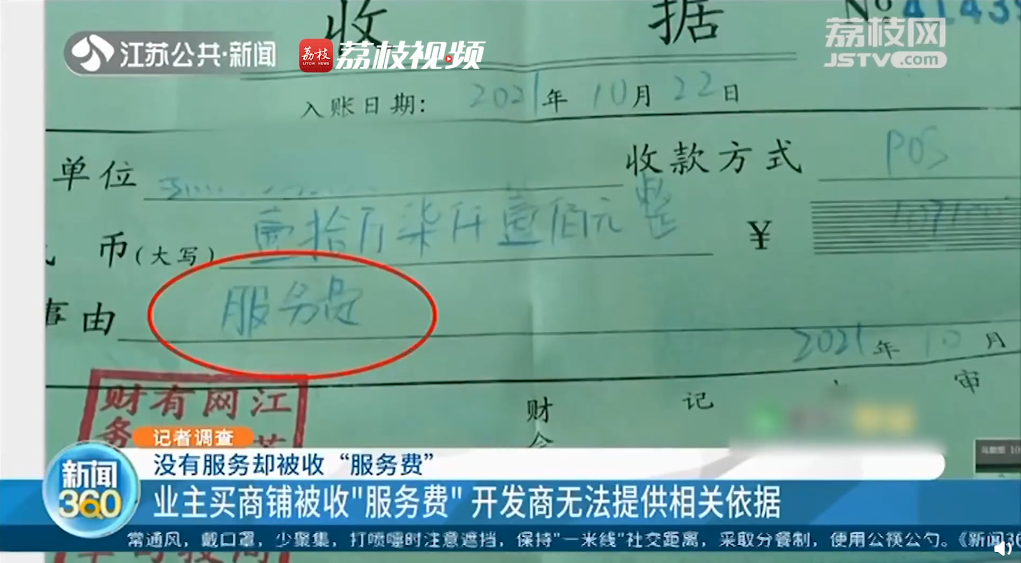 江苏公共·新闻
荔枝
荔枝视频
荔枝网
JSTV.com
收 据
入账日期: 2021年10月22日
单位
收款方式 POS
币(大写) 壹拾万柒仟壹佰元整 ¥
事由 服务费
2021年10月
财 记 审
会
财有网江
务
记者调查
没有服务却被收“服务费”
新闻
360
业主买商铺被收"服务费" 开发商无法提供相关依据
常通风，戴口罩，少聚集，打喷嚏时注意遮挡，保持"一米线"社交距离，采取分餐制，使用公筷公勺。《新闻36